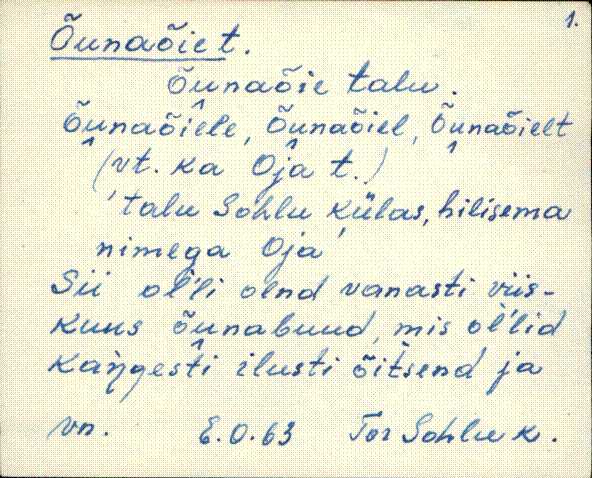 1.
Õunaõie t.
Õunaõie talu.
Õunaõiele, Õunaõiel, Õunaõielt
(vt. ka Oja t.)
'talu Sohlu külas, hilisema
nimega Oja'
Sii ol'li olnd vanasti viis-
kuus õunabuud, mis ol'lid
kangesti ilusti õitsend ja
vn. E.O.63 Tor Sohlu k.